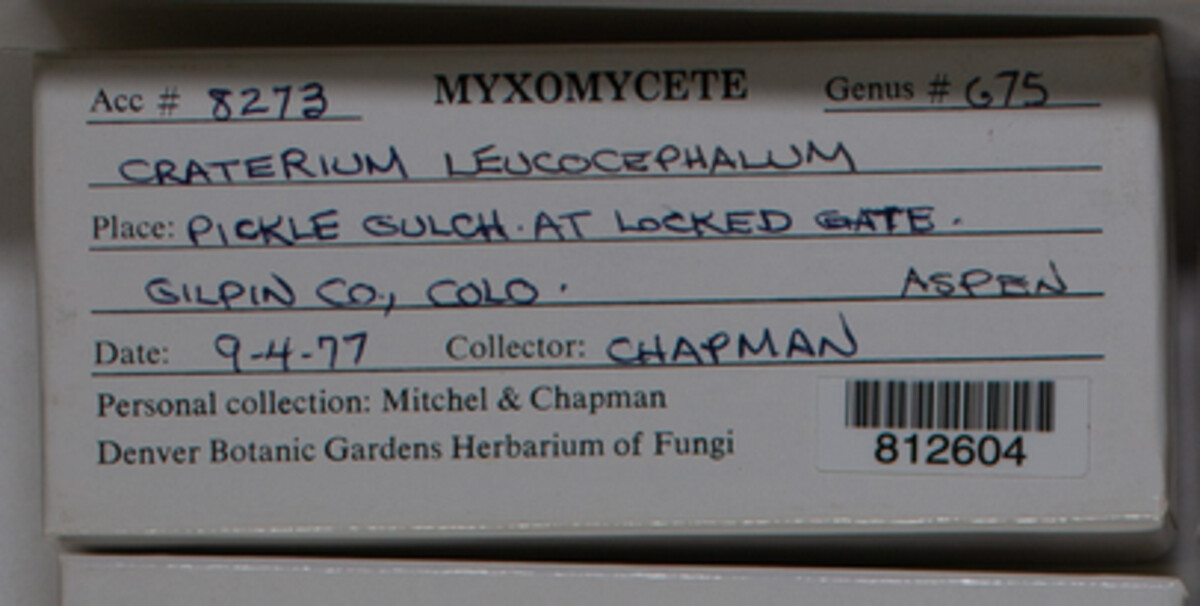 Acc # 8273 MYXOMYCETE Genus # 675
CRATERIUM LEUCOCEPHALUM
Place: PICKLE GULCH. AT LOCKED GATE.
GILPIN CO., COLO. ASPEN
Date: 9-4-77 Collector: CHAPMAN
Personal collection: Mitchel & Chapman
Denver Botanic Gardens Herbarium of Fungi
812604